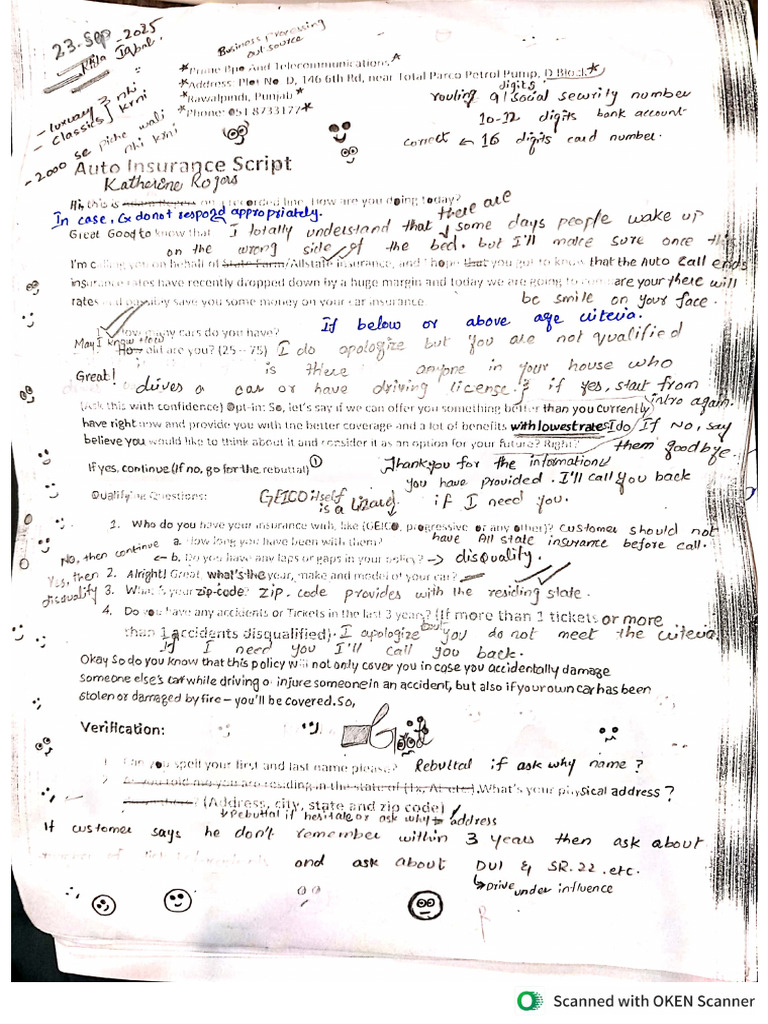 23-Sep-2025
Iqbal
Business processing
out source
*Prime Bpo And Telecommunications*
*Address: Plot No D, 146 6th Rd, near Total Parco Petrol Pump, D Block*
*Rawalpindi, Punjab*
*Phone: 051 8733177*
digits
routing 9/social security number
10-12 digits bank account
correct ← 16 digits card number.
- luxuary } nhi
- classics } krni
- 2000 se piche wali
nhi krni
Auto Insurance Script
Katherine Rogers
Hi, this is on a recorded line. How are you doing today?
In case, Cx do not respond appropriately.
Great Good to know that I totally understand that there are some days people wake up
on the wrong side of the bed. but I'll make sure once this
call ends
there will
be smile on your face.
I'm calling you on behalf of State Farm/Allstate insurance, and I hope that you got to know that the Auto
insurance rates have recently dropped down by a huge margin and today we are going to compare your
rates and possibly save you some money on your car insurance.
1. How many cars do you have?
If below or above age criteria.
May I know How
How old are you? (25 – 75) I do apologize but you are not qualified
Great! is there anyone in your house who
drives a car or have driving license.? if yes, start from
intro again.
(Ask this with confidence) Opt-in: So, let's say if we can offer you something better than you currently
have right now and provide you with the better coverage and a lot of benefits with lowest rates I do
believe you would like to think about it and consider it as an option for your future? Right?
If No, say
them goodbye.
If yes, continue (If no, go for the rebuttal) 1
Thank you for the informations
you have provided. I'll call you back
if I need you.
Qualifying Questions:
GEICO itself
is a lizard
1. Who do you have your insurance with, like (GEICO, progressive or any other)? Customer should not
have All state
insurance before call.
a. How long you have been with them?
No, then continue ← b. Do you have any laps or gaps in your policy? → disqualify.
Yes, then
disqualify
2. Alright! Great, what's the year, make and model of your car?
3. What is your zip-code? zip. code provides with the residing state.
4. Do you have any accidents or Tickets in the last 3 years? (If more than 1 tickets or more
than 1 accidents disqualified). I apologize but you do not meet the criteria.
If I need you I'll call you back.
Okay So do you know that this policy will not only cover you in case you accidentally damage
someone else's car while driving or injure someone in an accident, but also if your own car has been
stolen or damaged by fire – you'll be covered. So,
Verification:
1. Can you spell your first and last name please? Rebuttal if ask why name?
2. As you told me you are residing in the state of (Tx, Al etc). What's your physical address?
(Address, city, state and zip code)
Rebuttal if hesitate or ask why address
If customer says he don't remember within 3 years then ask about
and ask about DUI & SR.22 .etc.
↳ Drive under influence
Scanned with OKEN Scanner